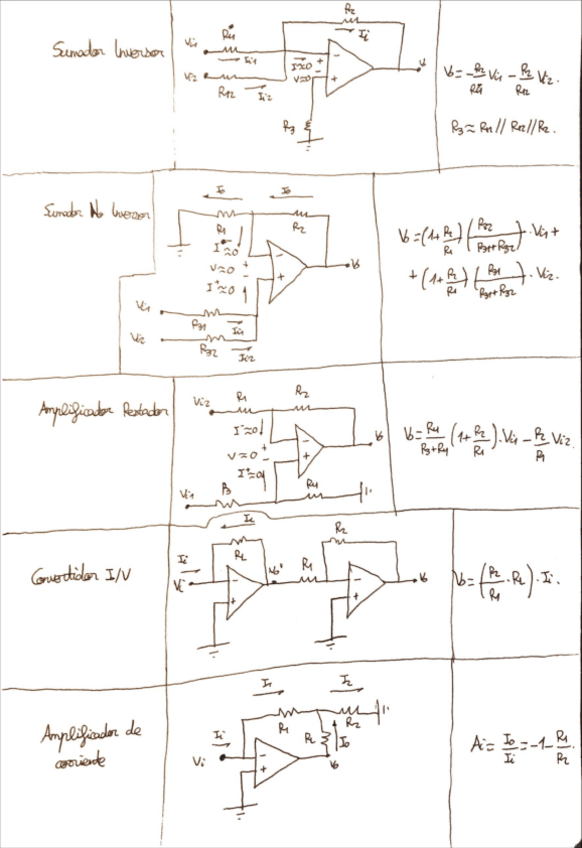 Sumador Inversor
Vi1
R11
Ii1
Vi2
R12
Ii2
R2
Ii
I≈0
V≈0
-
+
+
-
R3
Vo
Vo = -R2/R11 Vi1 - R2/R12 Vi2.
R3 ≈ R11 // R12 // R2.
Sumador No Inversor
Io
Io
R1
R2
I⁻≈0
V≈0
I⁺≈0
-
+
Vo
Vi1
R31
Ii1
Vi2
R32
Ii2
Vo = (1+R2/R1) (R32/R31+R32) · Vi1 +
+ (1+R2/R1) (R31/R31+R32) · Vi2.
Amplificador Restador
Vi2
R1
R2
I⁻≈0
V≈0
I⁺≈0
-
+
Vo
Vi1
R3
R4
Vo = R4/R3+R4 (1+R2/R1) · Vi1 - R2/R1 Vi2.
Convertidor I/V
Ii
Vi
RL
-
+
Vo'
R1
R2
-
+
Vo
Vo = (R2/R1 · RL) · Ii.
Amplificador de
corriente
I1
I2
Ii
Vi
R1
R2
RL
Io
-
+
Vo
Ai = Io/Ii = -1 - R1/R2.